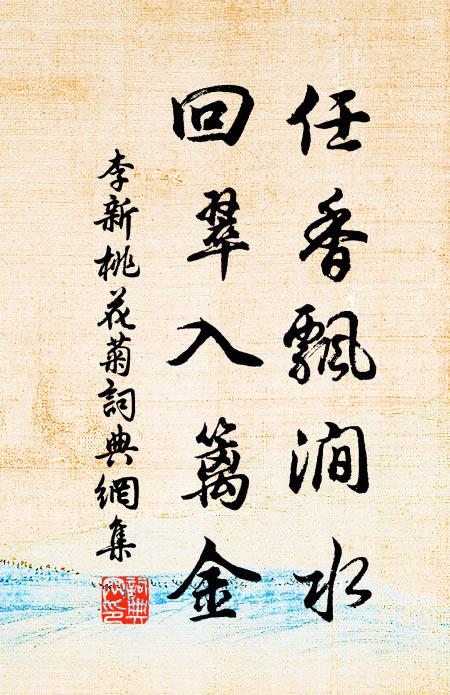 任香飄澗水
回翠入篱金
李新桃花菊詞典網集